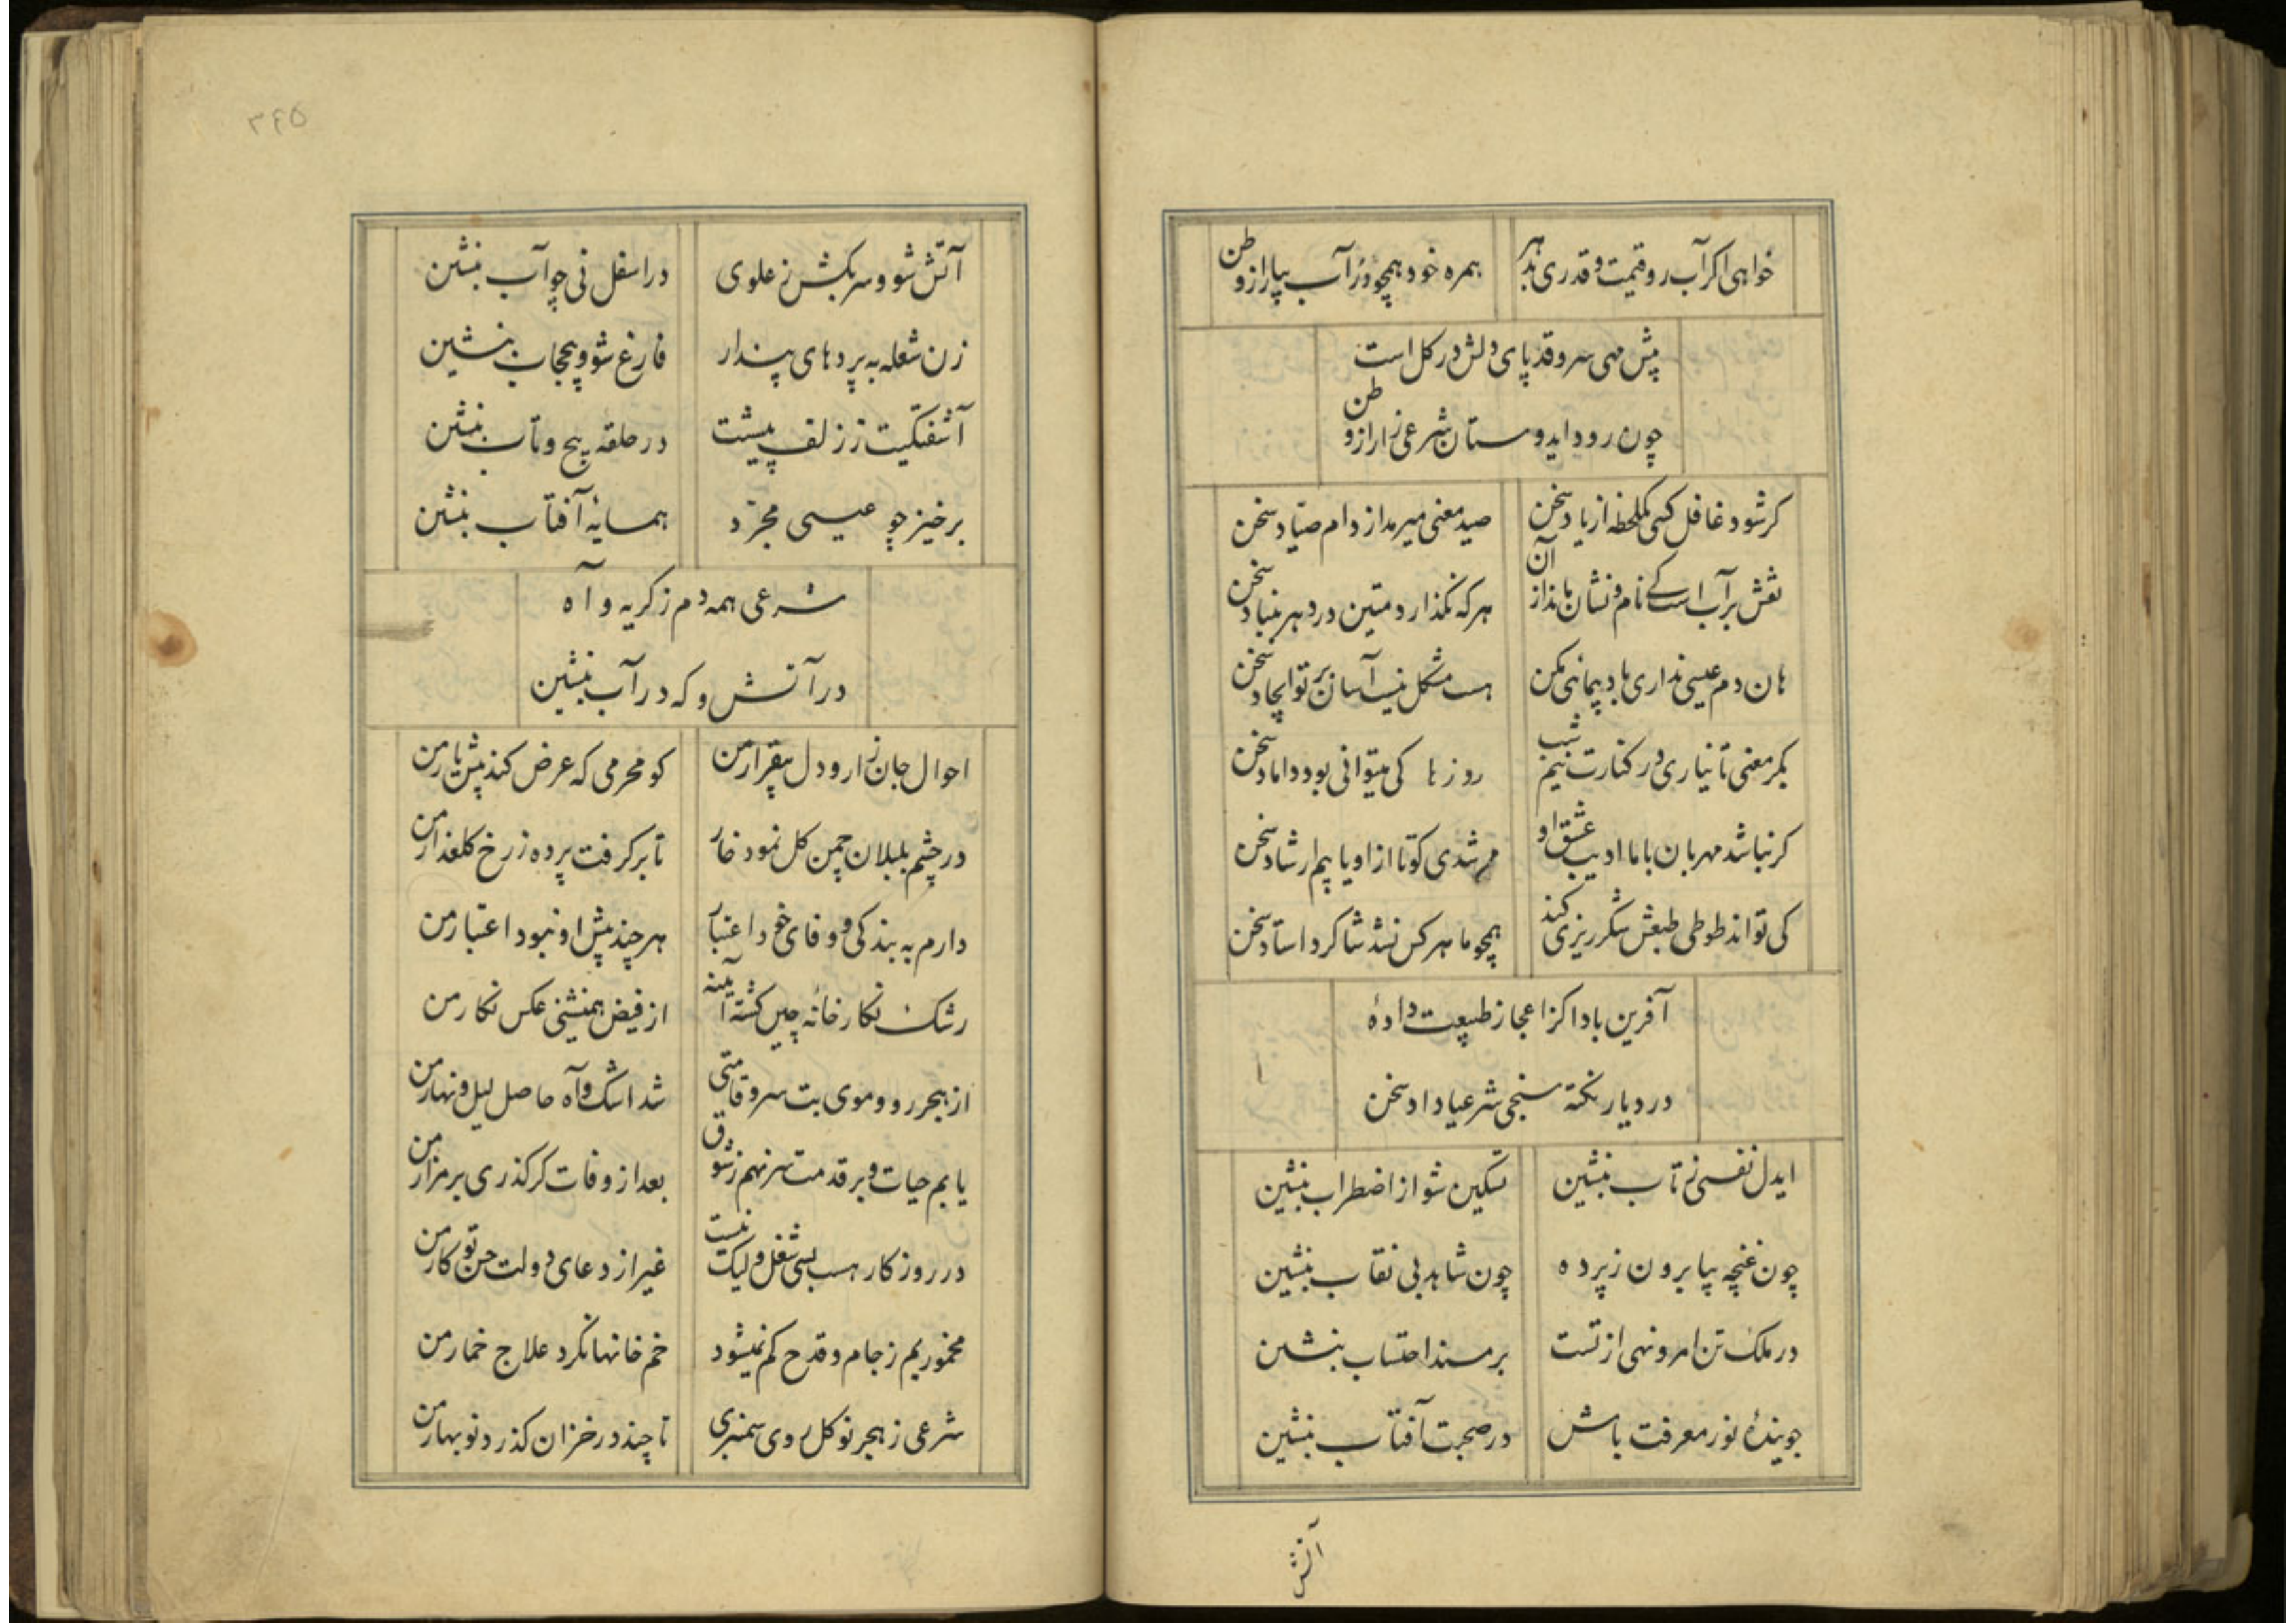 خواهی اکر آب رو و قیمت و قدری بدهر
همره خود همچو در آب بیار از وطن
پیش مهی سرو قد پای دلش در کل است
چون رود ایدوستان شرعی زار از وطن
کر شود غافل کسی یکلحظه از یاد سخن
صید معنی میرمد از دام صیاد سخن
نقش بر آب است کی نام و نشان ماند از آن
هر که نگذارد متین در دهر بنیاد سخن
هان دم عیسی نداری باد پیمائی مکن
هست مشکل نیست آسان بر تو ایجاد سخن
بکر معنی تا نیاری در کنارت نیم شب
روزها کی میتوانی بود داماد سخن
کر نباشد مهربان باما ادیب عشق او
مرشدی کو تا از او یابیم ارشاد سخن
کی تواند طوطی طبعش شکر ریزی کند
همچو ما هر کس نشد شاکرد استاد سخن
آفرین بادا کز اعجاز طبیعت دادۀ
در دیار نکته سنجی شرعیا داد سخن
ایدل نفسی ز تاب بنشین
تسکین شو از اضطراب بنشین
چون غنچه بیا برون ز پرده
چون شاهد بی نقاب بنشین
در ملک تن امر و نهی از تست
بر مسند احتساب بنشین
جویندۀ نور معرفت باش
در صحبت آفتاب بنشین
آتش
۳۴۵
آتش شو و سر بکش ز علوی
در اسفل نی چو آب بنشین
زن شعله به پردهای پندار
فارغ شو و بیحجاب بنشین
آشفتکیت ز زلف پیشست
در حلقه پیچ و تاب بنشین
برخیز چو عیسی مجرّد
همسایۀ آفتاب بنشین
شرعی همه دم ز کریه و آه
در آتش و که در آب بنشین
احوال جان زار و دل بیقرار من
کو محرمی که عرض کند پیش یار من
در چشم بلبلان چمن کل نمود خار
تا بر کرفت پرده ز رخ کلعذار من
دارم به بندکی و وفای خود اعتبار
هر چند پیش او نبود اعتبار من
رشک نکارخانۀ چین کشته آینه
از فیض همنشینی عکس نکار من
از هجر رو و موی بت سرو قامتی
شد اشک و آه حاصل لیل و نهار من
یابم حیات و بر قدمت سر نهم ز شوق
بعد از وفات کر کذری بر مزار من
در روزکار هست بسی شغل و لیک نیست
غیر از دعای دولت حسن تو کار من
مخموریم ز جام و قدح کم نمیشود
خم خانها نکرد علاج خمار من
شرعی ز هجر نوکل روی سمنبری
تا چند در خزان کذرد نوبهار من